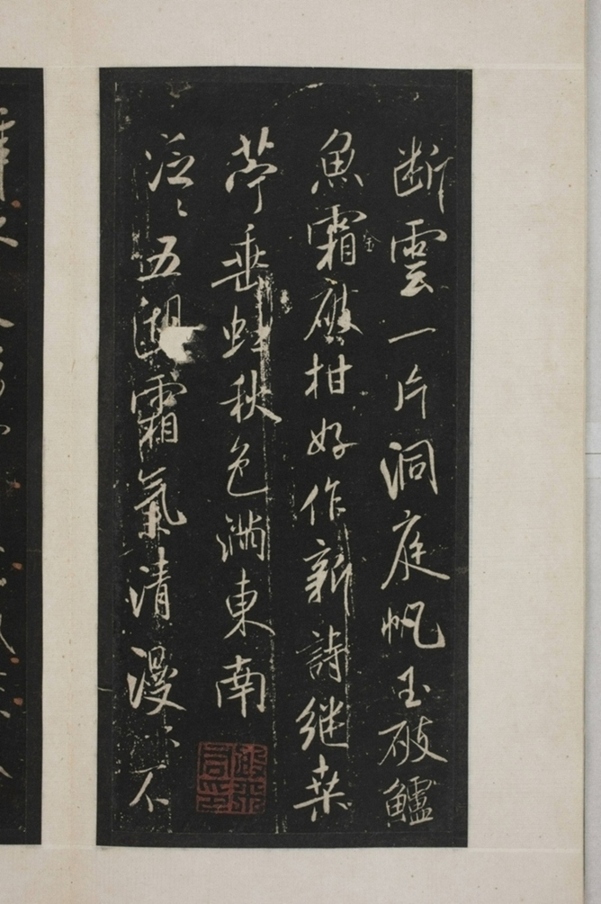 断雲一片洞庭帆玉破鱸
魚霜金柑好作新詩继桒
苧垂虹秋色满東南
泛〻五湖霜氣清漫〻不